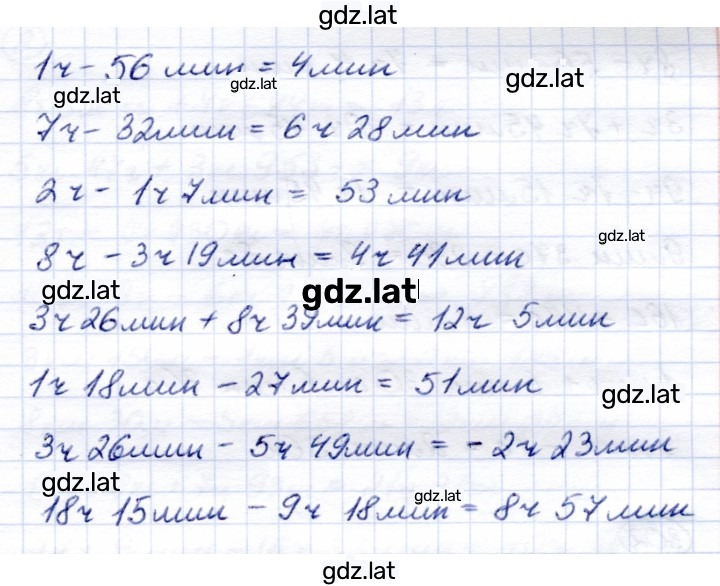 gdz.lat
1ч - 56 мин = 4 мин
gdz.lat gdz.lat gdz.lat
7ч - 32 мин = 6 ч 28 мин
2 ч - 1 ч 7 мин = 53 мин
gdz.lat
8 ч - 3 ч 19 мин = 4 ч 41 мин
gdz.lat gdz.lat
3ч 26 мин + 8ч 39 мин = 12ч 5 мин
1ч 18 мин - 27 мин = 51 мин
gdz.lat
3ч 26 мин - 5ч 49 мин = - 2ч 23 мин
gdz.lat gdz.lat
18ч 15 мин - 9ч 18 мин = 8ч 57 мин
gdz.lat